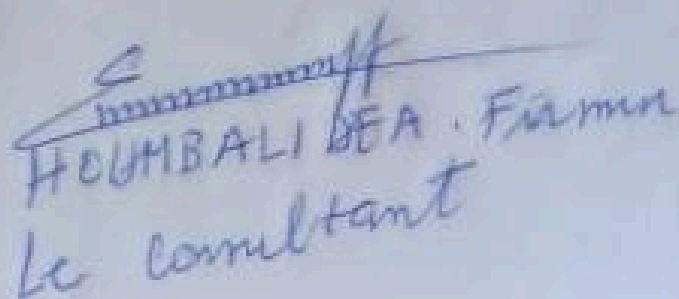 HOUMBALI DEA. Firmin
Le consultant